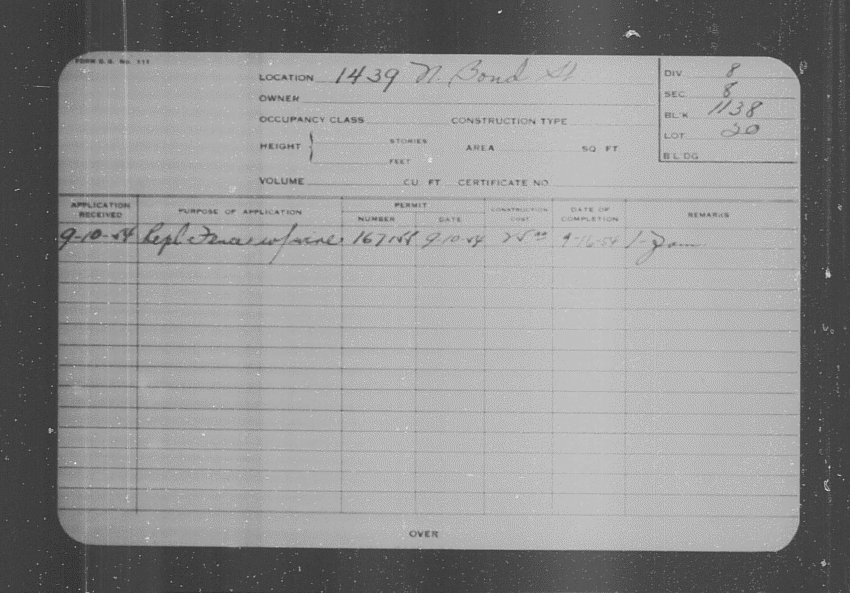 FORM B. E. No. 111
LOCATION 1439 N. Bond St
OWNER
OCCUPANCY CLASS CONSTRUCTION TYPE
HEIGHT STORIES FEET AREA SQ FT
VOLUME CU. FT. CERTIFICATE NO
DIV. 8
SEC. 8
BL'K. 1138
LOT 20
BLDG
APPLICATION RECEIVED PURPOSE OF APPLICATION PERMIT NUMBER DATE CONSTRUCTION COST DATE OF COMPLETION REMARKS
9-10-54 Repl. Fence w/ 9-10-54 25 00 9-16-54 1-
OVER